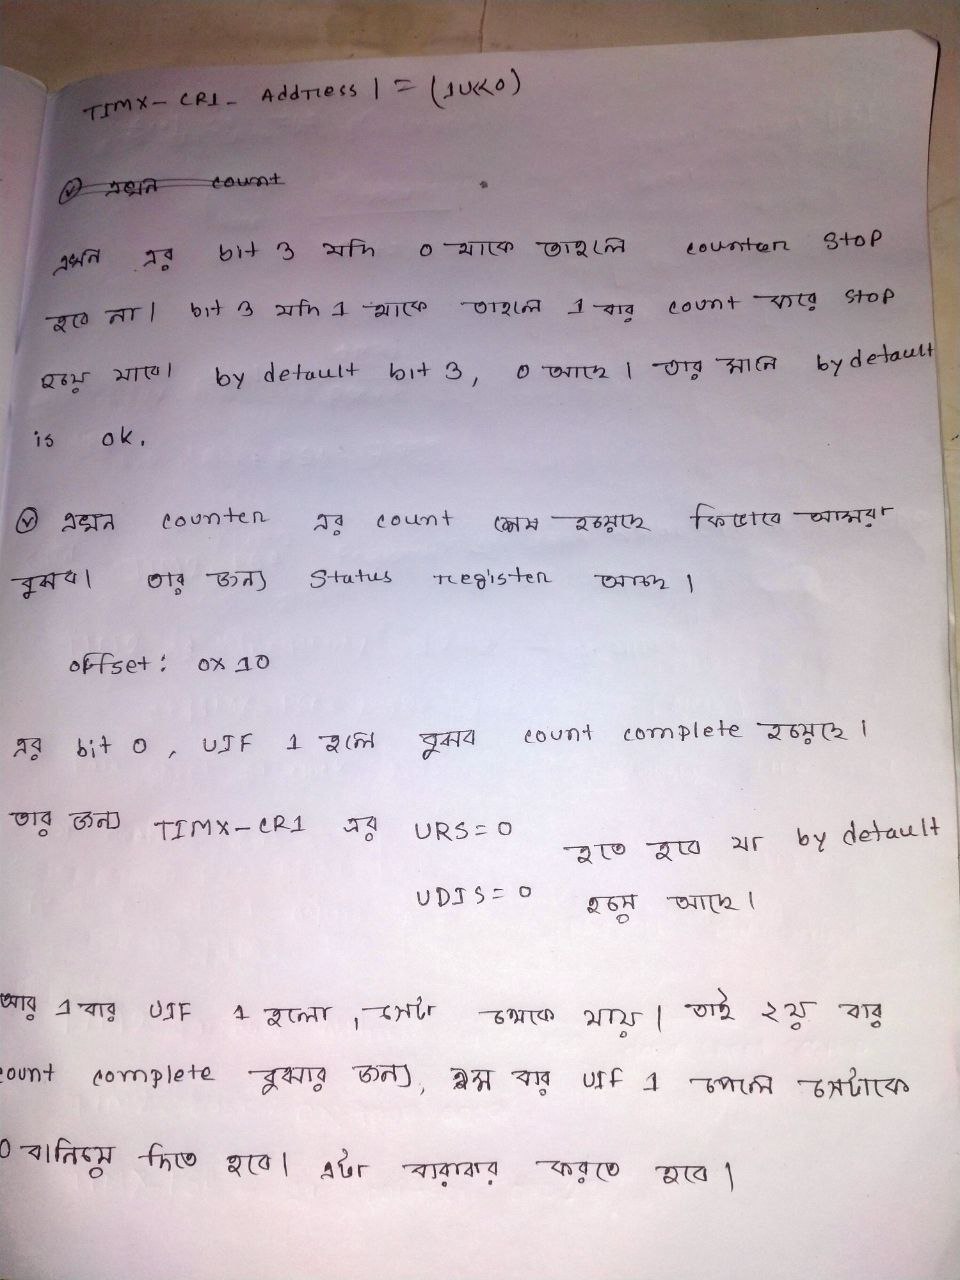 TIMX-CR1-Address |= (1U<<0)
এখন count
এখন এর bit 3 যদি 0 থাকে তাহলে counter stop
হবে না। bit 3 যদি 1 থাকে তাহলে 1 বার count করে stop
হয়ে যাবে। by default bit 3, 0 আছে। তার মানে by default
is ok.
এখন counter এর count শেষ হয়েছে কিভাবে আমরা
বুঝব। তার জন্য Status register আছে।
offset: 0x10
এর bit 0, UIF 1 হলে বুঝব count complete হয়েছে।
তার জন্য TIMX-CR1 এর URS=0 হতে হবে যা by default
UDIS=0 হয়ে আছে।
আর 1 বার UIF 1 হলে, সেটা থেকে যায়। তাই ২য় বার
count complete বুঝার জন্য, ১ম বার UIF 1 পেলে সেটাকে
0 বানিয়ে দিতে হবে। এটা বারবার করতে হবে।